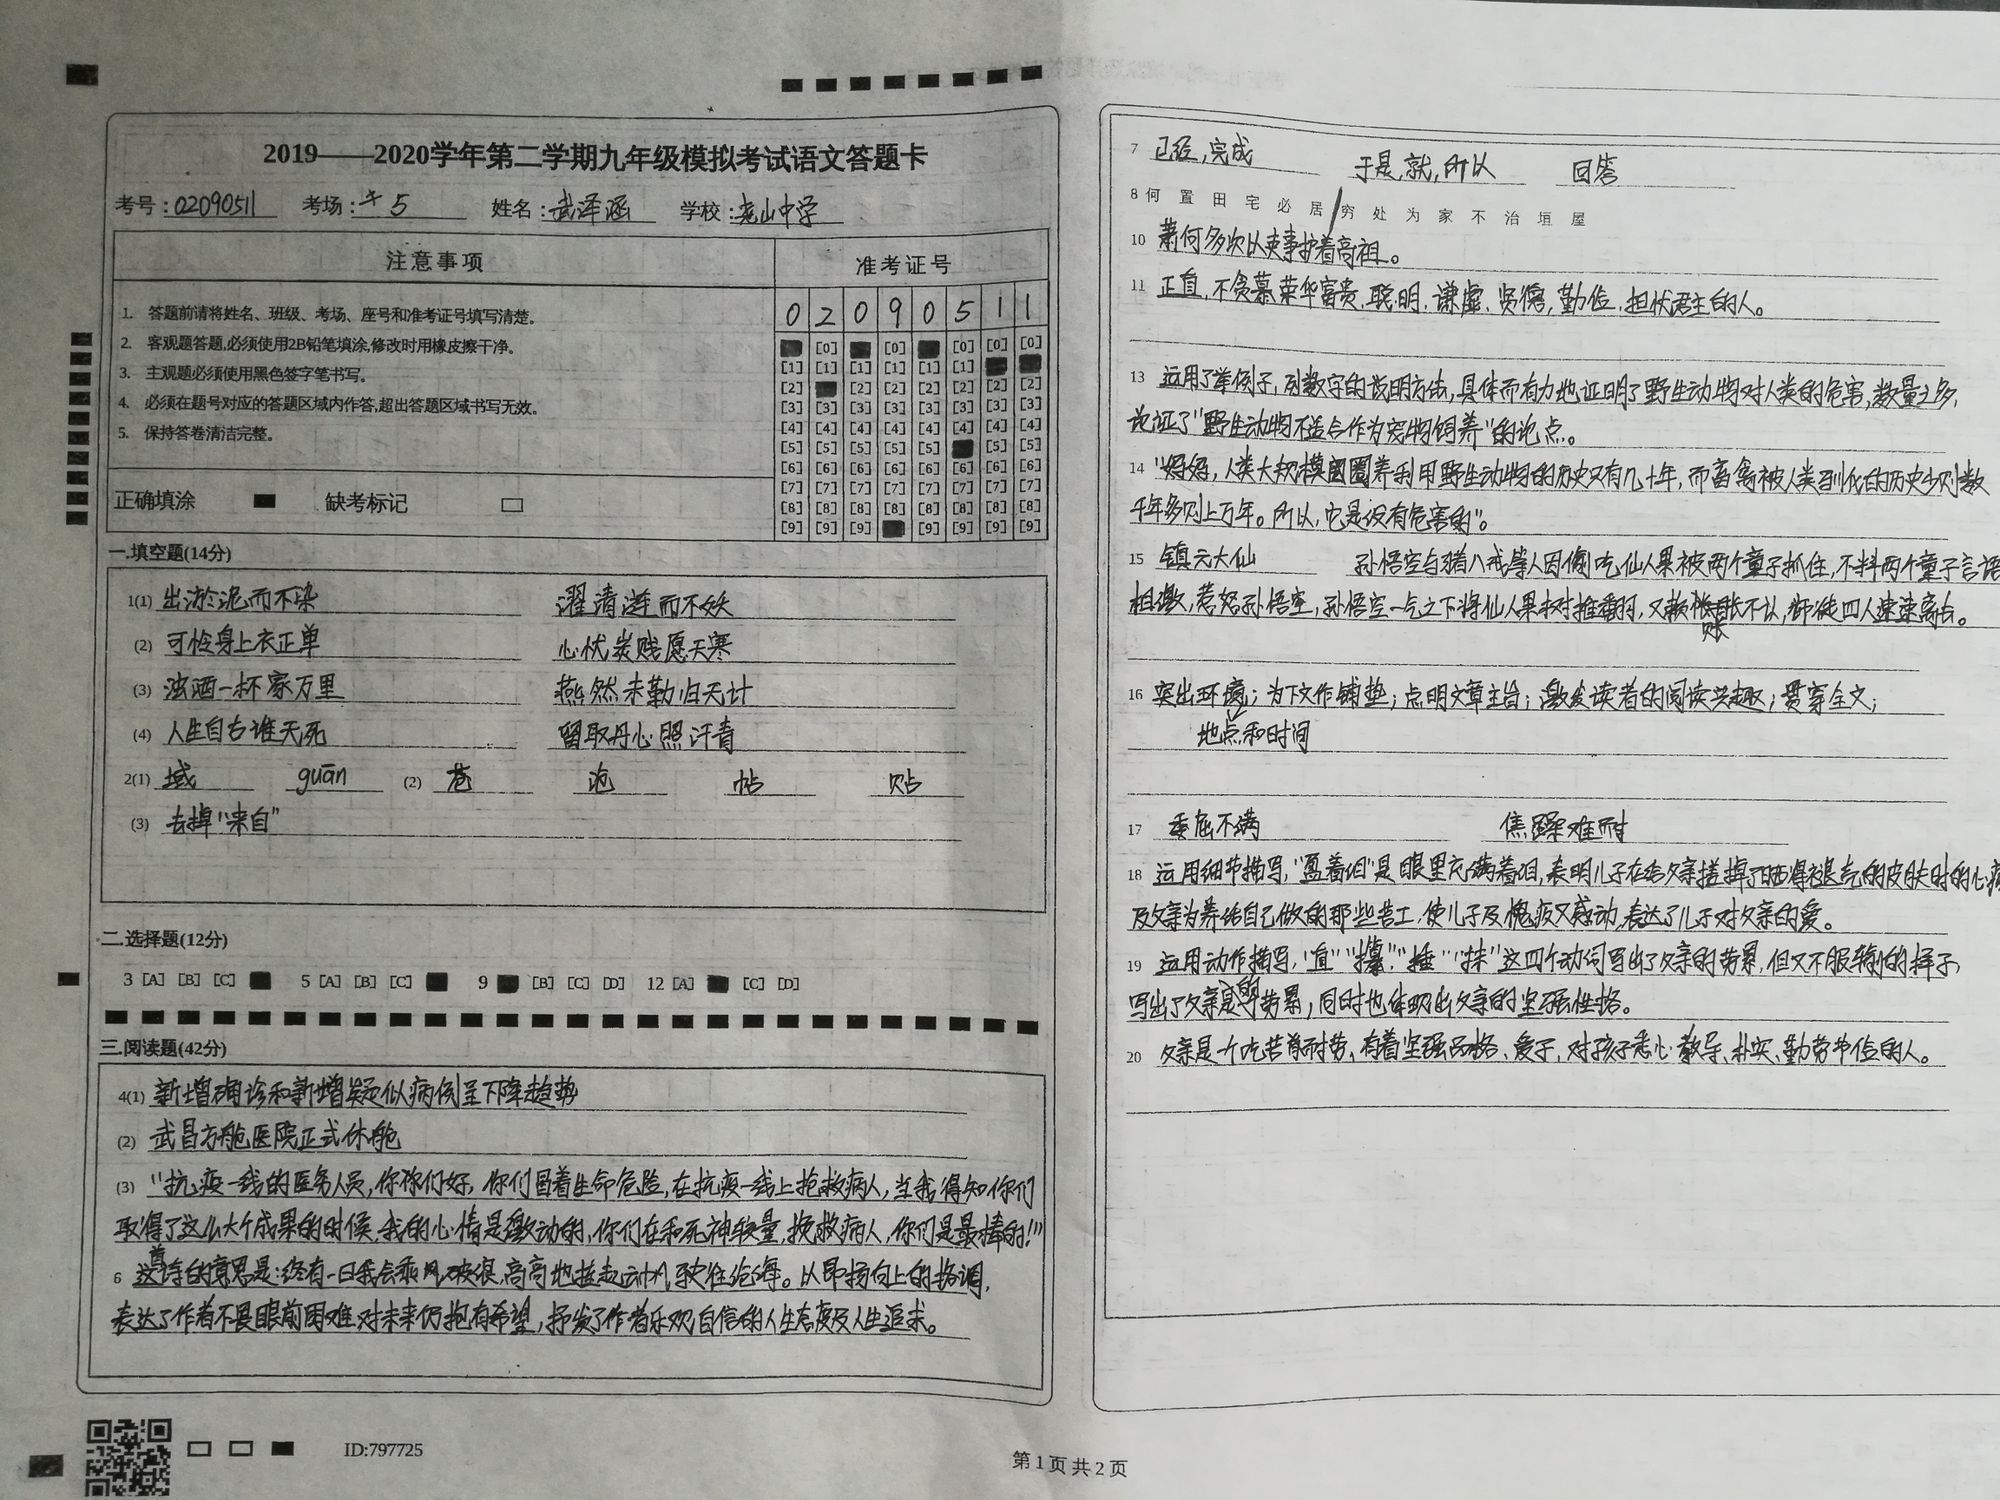 2019——2020学年第二学期九年级模拟考试语文答题卡
考号:02090511 考场:十5 姓名:武泽涵 学校:尧山中学
注意事项 准考证号
0 2 0 9 0 5 1 1
1. 答题前请将姓名、班级、考场、座号和准考证号填写清楚。
2. 客观题答题,必须使用2B铅笔填涂,修改时用橡皮擦干净。
3. 主观题必须使用黑色签字笔书写。
4. 必须在题号对应的答题区域内作答,超出答题区域书写无效。
5. 保持答卷清洁完整。
[0] [0] [0] [0]
[1] [1] [1] [1] [1] [1]
[2] [2] [2] [2] [2] [2] [2]
[3] [3] [3] [3] [3] [3] [3] [3]
[4] [4] [4] [4] [4] [4] [4] [4]
[5] [5] [5] [5] [5] [5] [5]
[6] [6] [6] [6] [6] [6] [6] [6]
[7] [7] [7] [7] [7] [7] [7] [7]
[8] [8] [8] [8] [8] [8] [8] [8]
[9] [9] [9] [9] [9] [9] [9]
正确填涂 缺考标记
一.填空题(14分)
1(1) 出淤泥而不染 濯清涟而不妖
(2) 可怜身上衣正单 心忧炭贱愿天寒
(3) 浊酒一杯家万里 燕然未勒归无计
(4) 人生自古谁无死 留取丹心照汗青
2(1) 域 guān (2) 苍 沧 帖 贴
(3) 去掉"来自"
二.选择题(12分)
3 [A] [B] [C] 5 [A] [B] [C] 9 [B] [C] [D] 12 [A] [C] [D]
三.阅读题(42分)
4(1) 新增确诊和新增疑似病例呈下降趋势
(2) 武昌方舱医院正式休舱
(3) "抗疫一线的医务人员,你们好,你们冒着生命危险,在抗疫一线上抢救病人,当我得知你们
取得了这么大个成果的时候,我的心情是激动的,你们在和死神较量,挽救病人,你们是最棒的!"
6 这首诗的意思是:终有一日我会乘风破浪,高高地挂起云帆驶往沧海。以昂扬向上的格调,
表达了作者不畏眼前困难对未来仍抱有希望,抒发了作者乐观自信的人生态度及人生追求。
7 已经,完成 于是,就,所以 回答
8 何 置 田 宅 必 居 / 穷 处 为 家 不 治 垣 屋
10 萧何多次以吏事护着高祖。
11 正直,不贪慕荣华富贵,聪明,谦虚、贤德,勤俭,担忧君主的人。
13 运用了举例子,列数字的说明方法,具体而有力地证明了野生动物对人类的危害,数量之多,
论证了"野生动物不适合作为宠物饲养"的论点。
14 "妈妈,人类大规模圈养利用野生动物的历史只有几十年,而畜禽被人类驯化的历史少则数
千年多则上万年。所以,它是没有危害的"。
15 镇元大仙 孙悟空与猪八戒等人因偷吃仙人果被两个童子抓住,不料两个童子言语
相激,惹怒孙悟空,孙悟空一气之下将仙人果树推翻,又赖账不认,师徒四人速速离去。
16 突出环境;为下文作铺垫;点明文章主旨;激发读者的阅读兴趣;贯穿全文;
地点和时间
17 委屈不满 焦躁难耐
18 运用细节描写,"盈着泪"是眼里充满着泪,表明儿子在给父亲搓掉了晒得褪壳的皮肤时的心疼
及父亲为养给自己做的那些苦工,使儿子及愧疚又感动,表达了儿子对父亲的爱。
19 运用动作描写,"直""攥""捶""抹"这四个动词写出了父亲的劳累,但又不服输的样子,
写出了父亲的劳累,同时也体现出父亲的坚强性格。
20 父亲是一个吃苦耐劳、有着坚强品格、爱子,对孩子悉心教导、朴实、勤劳节俭的人。
ID:797725
第1页共2页